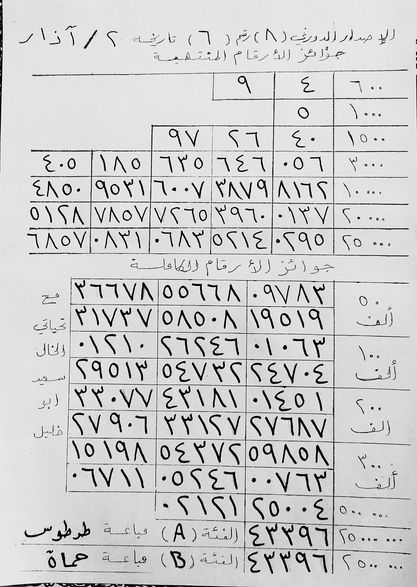 الإصدار الدوري (٨) رقم (٦) تاريخه ٢/آذار
جوائز الأرقام المنتهية
٦٠٠ ٤ ٩
١٠٠٠ ٥
١٥٠٠ ٤٠ ٢٦ ٩٧
٣٠٠٠ ٠٥٦ ٦٤٦ ٦٣٥ ١٨٥ ٤٠٥
١٠٠٠٠ ٨١٦٢ ٣٨٧٩ ٦٠٠٧ ٩٥٣١ ٤٨٥٠
٢٠٠٠٠ ٠١٣٧ ٣٩٦٠ ٧٢٦٥ ٧٨٥٧ ٥١٢٨
٢٥٠٠٠ ٠٢٩٥ ٥٢١٤ ٠٦٨٣ ٠٨٣١ ٦٨٥٧
جوائز الأرقام الكاملة
٥٠ ٠٩٧٨٣ ٥٥٦٦٨ ٣٦٦٧٨ مع
ألف ١٩٥١٩ ٥٨٥٠٨ ٣١٧٣٧ تحياتي
١٠٠ ٠١٠٦٣ ٢٦٢٤٦ ٠١٢١٠ الخال
ألف ٢٤٧٠٤ ٥٤٧٣٢ ٢٩٥١٣ سعيد
٢٠٠ ٠١٤٥١ ٤٣١٨١ ٣٣٠٧٧ ابو
الف ٢٧٦٨٧ ٣٣١٢٧ ٢٧٩٠٦ خليل
٣٠٠ ٥٩٨٥٨ ٥٤٣٧٢ ١٥١٩٨
ألف ٠٠٧٦٣ ٠٥٢٤٦ ٠٦٧١١
٥٠٠٠٠٠ ٢٥٠٠٤ ٠٢١٢١
٢٥٠٠٠٠٠٠ ٤٣٣٩٦ الفئة (A) مباعة طرطوس
٢٥٠٠٠٠٠ ٤٣٣٩٦ الفئة (B) مباعة حماة